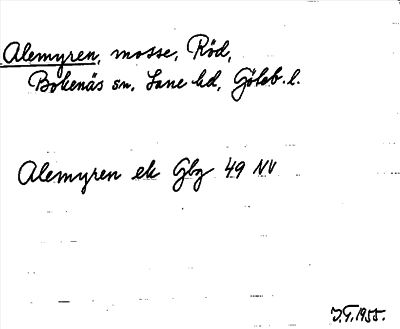 Alemyren, mosse, Röd,
Bokenäs sn, Lane hd, Göteb. l.
Alemyren ek Gbg 49 NV
J.G. 1955.